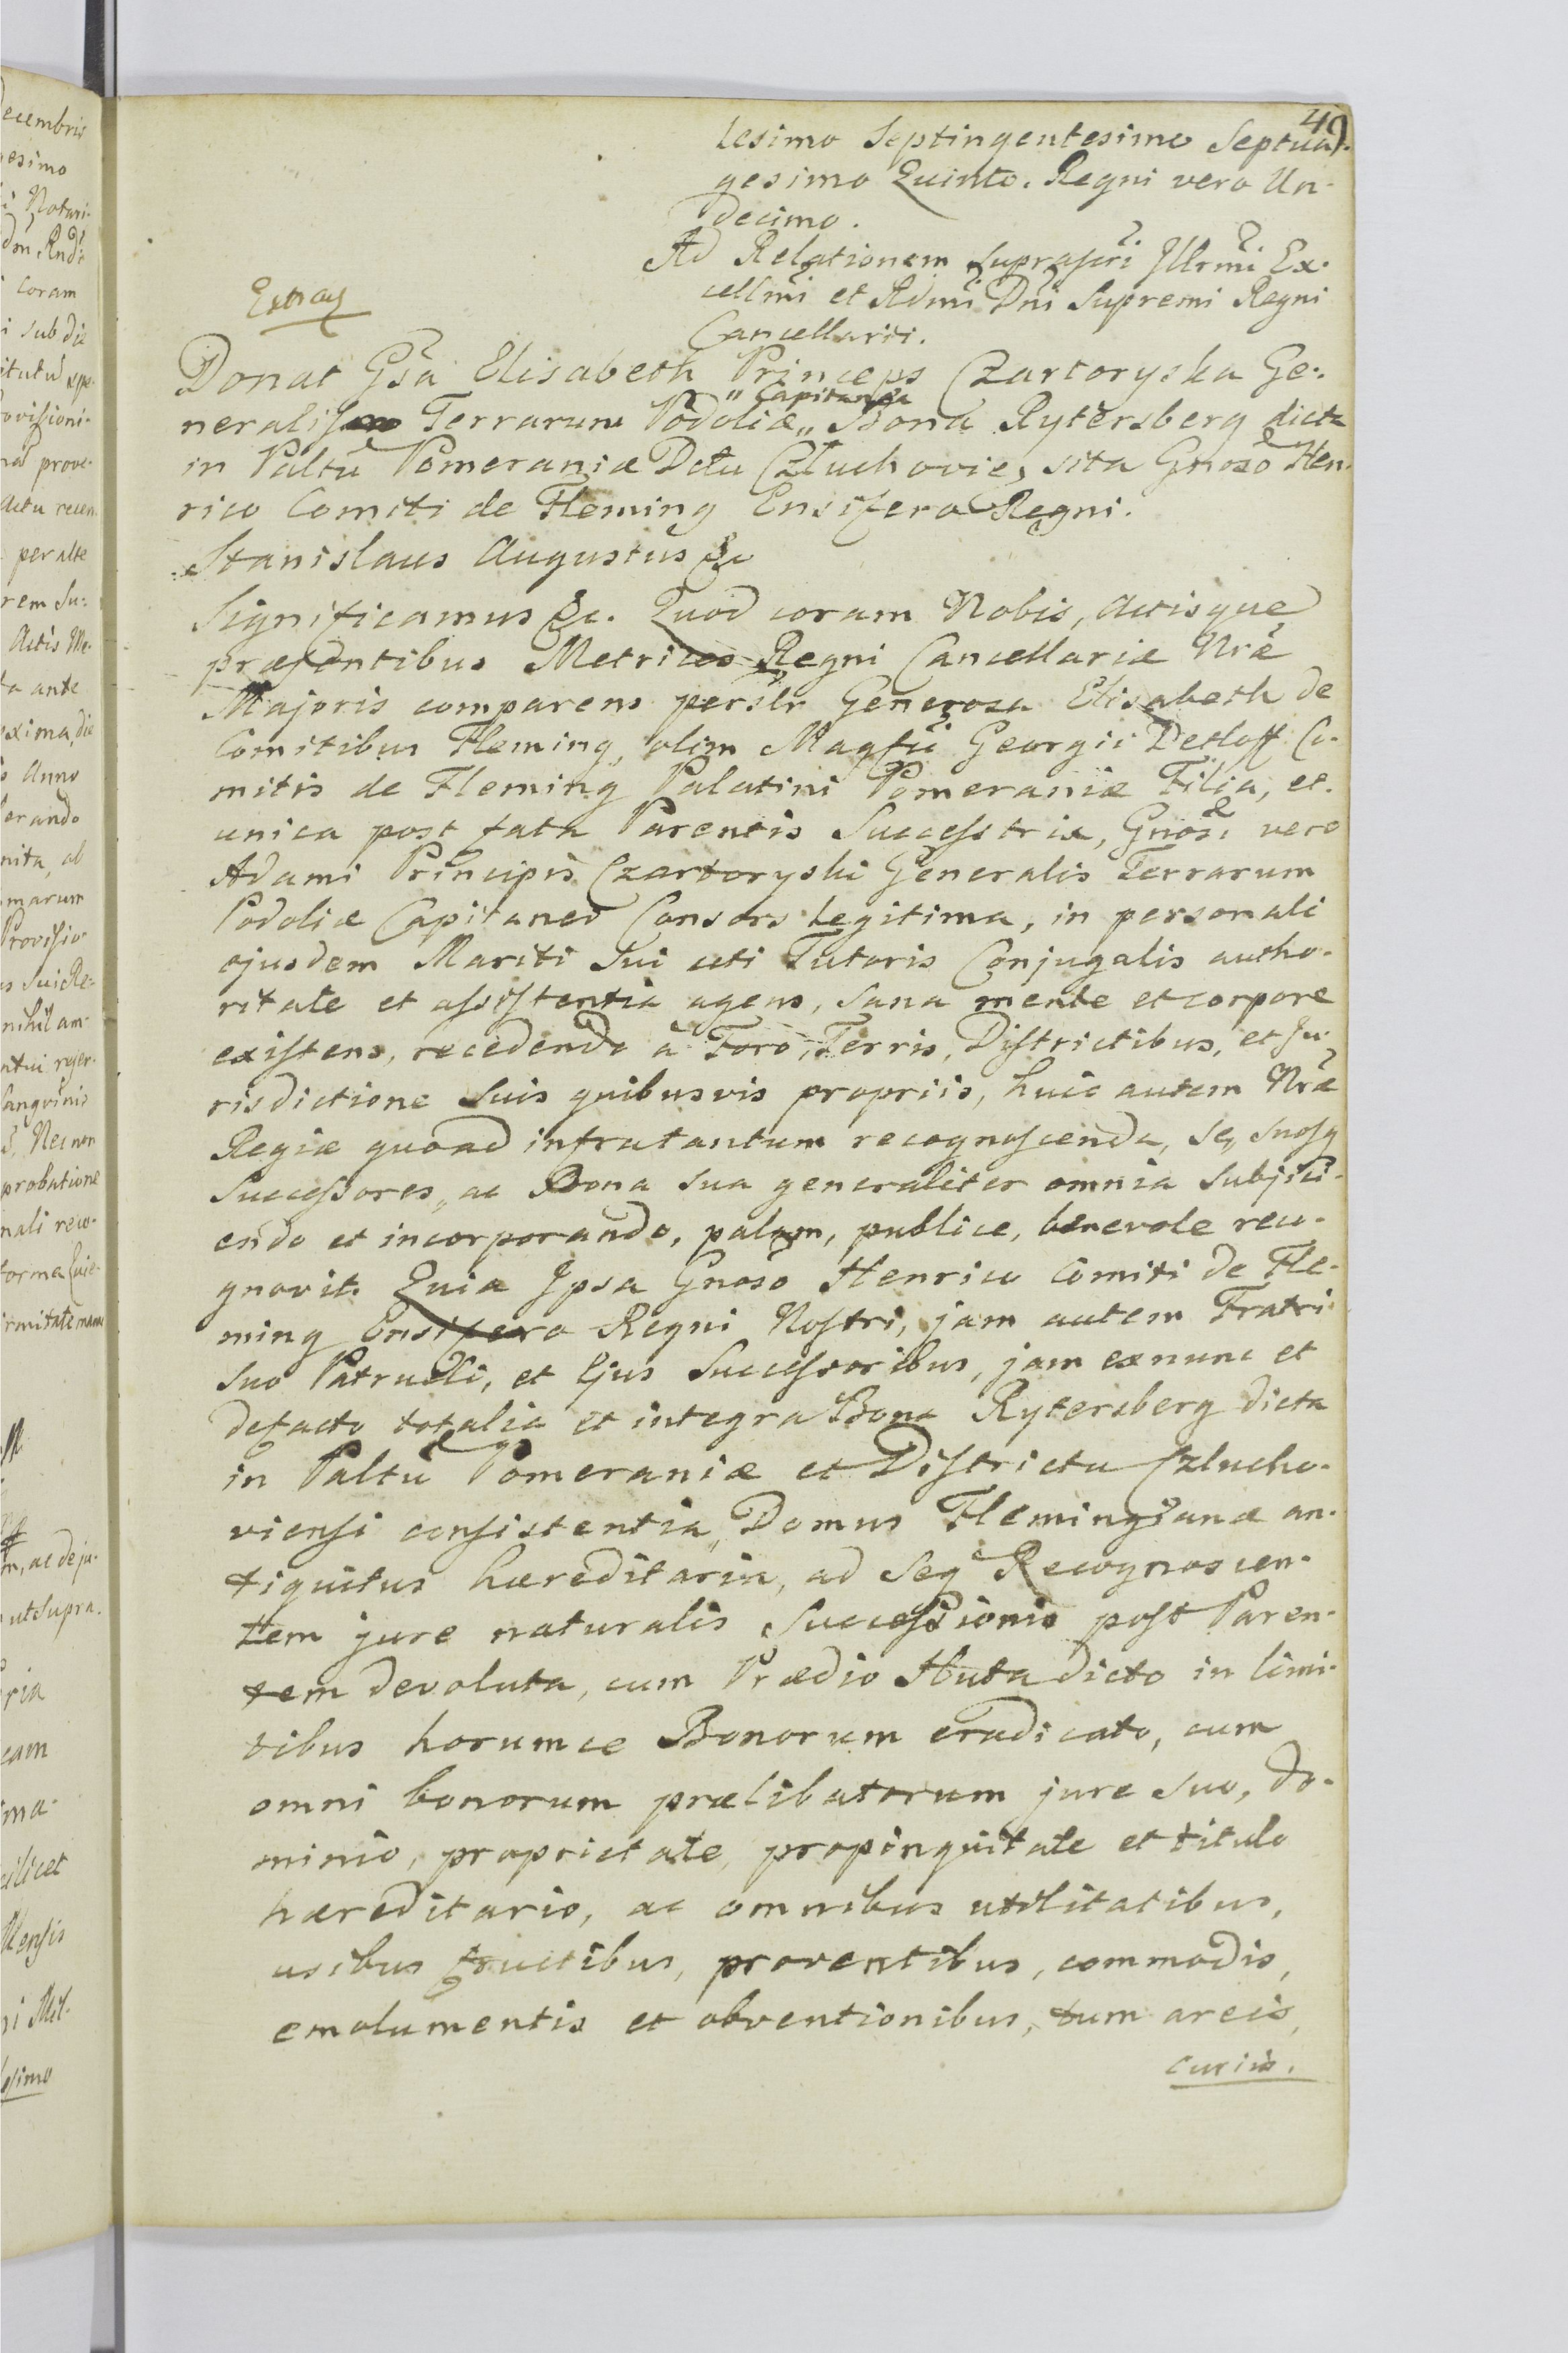 49
lesimo Septingentesimo Septua-
gesimo Quinto. Regni vero Un-
decimo.
Ad Relationem suprascri Illrmi Ex-
cellmi et Rdmi Dni Supremi Regni
Cancellarii.
Donat Gsa Elisabeth Princeps Czartoryska Ge-
neralis Terrarum Podoliæ „ Capitanea „ Bona Rytersberg dicta
in Paltu Pomeraniæ Dctu Człuchovien sita Gnoso Hen-
rico Comiti de Fleming Ensifero Regni.
Stanislaus Augustus &c
Significamus &c. Quod coram Nobis, Actisque
præsentibus Metrices Regni Cancellariæ Nræ
Majoris comparens perslr Generosa Elisabeth de
Comitibus Fleming, olim Magfci Georgii Detloff Co-
mitis de Fleming Palatini Pomeraniæ Filia, et
unica post fata Parentis Successtrix, Gnosi vero
Adami Principis Czartoryski Generalis Terrarum
Podoliæ Capitanei Consors legitima, in personali
ejusdem Mariti Sui uti Tutoris Conjugalis autho-
ritate et assistentia agens, sana mente et corpore
existens, recedendo à Foro, Terris, Districtibus, et Ju-
risdictione Suis quibusvis propriis, huic autem Nræ
Regiæ quoad infratantum recognoscenda, se, suosq
Successores, ac Bona sua generaliter omnia subjici-
endo et incorporando, palam, publice, benevole reco-
gnovit. Quia Ipsa Gnoso Henrico Comiti de Fle-
ming Ensifero Regni Nostri, jam autem Fratri
Suo Patrueli, et Ejus Successoribus, jam exnunc et
defacto totalia et integra Bona Rytersberg dicta
in Paltu Pomeraniæ et Districtu Czlucho-
viensi consistentia, Domus Flemingianæ an-
tiquitus hæreditaria, ad Seq Recognoscen-
tem jure naturalis Successionis post Paren-
tem devoluta, cum Prædio Huta dicto in limi-
tibus horumce Bonorum eradicato, cum
omni bonorum prælibatorum jure suo, do-
minio, proprietate, propinquitate et titulo
hæreditario, ac omnibus utilitatibus,
usibus fructibus, proventibus, commodis,
emolumentis et obventionibus, tum areis,
curiis.